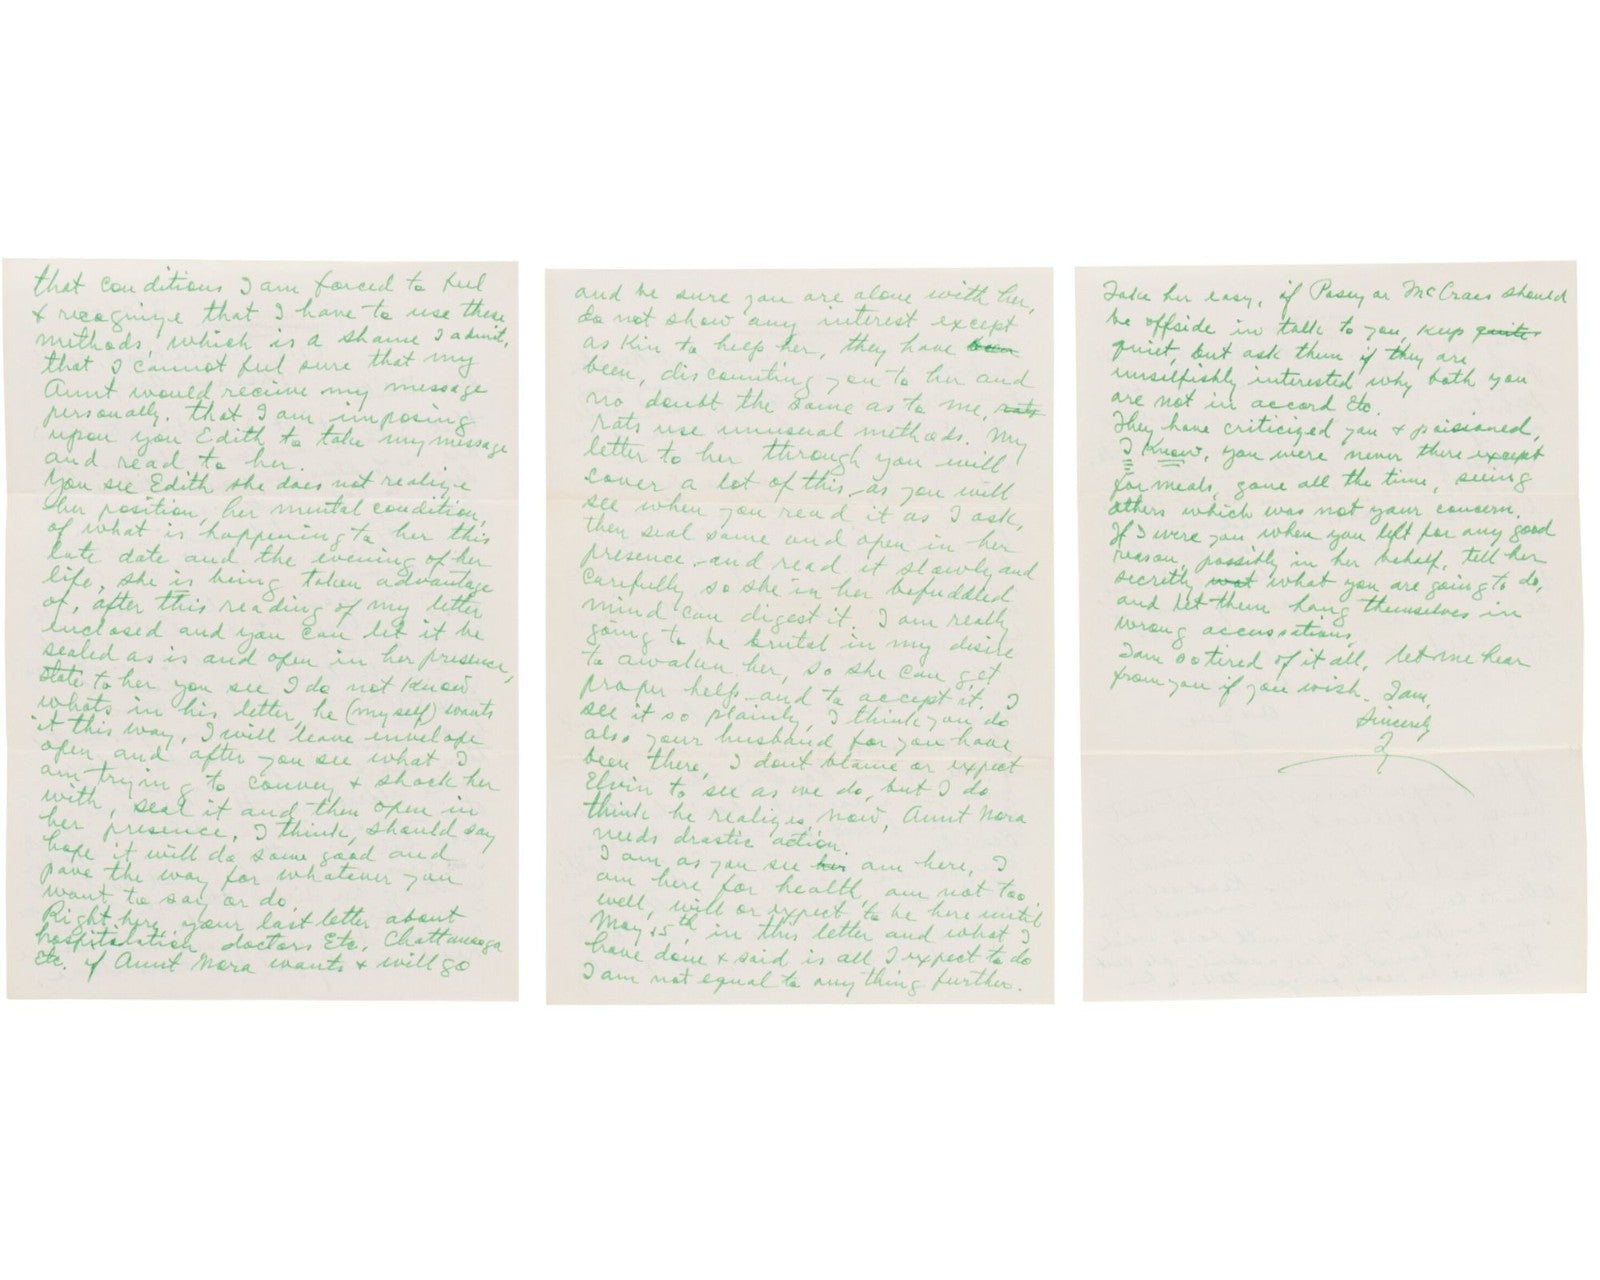 that conditions I am forced to feel
& recognize that I have to use these
methods, which is a shame I admit,
that I cannot feel sure that my
Aunt would receive my message
personally. that I am imposing
upon you Edith to take my message
and read to her.
You see Edith she does not realize
her position, her mental condition,
of what is happening to her this
late date and the evening of her
life, she is being taken advantage
of, after this reading of my letter
enclosed and you can let it be
sealed as is and open in her presence,
state to her you see I do not know
whats in his letter, he (myself) wants
it this way, I will leave envelope
open and after you see what I
am trying to convey & shock her
with, seal it and then open in
her presence, I think, should say
hope it will do some good and
pave the way for whatever you
want to say or do.
Right here your last letter about
hospitalstion, doctors Etc. Chattanooga
Etc. if Aunt Nora wants & will go
and be sure you are alone with her,
do not show any interest except
as Kin to help her, they have been
been, discounting you to her and
no doubt the same as to me, rats
rats use unusual methods. My
letter to her through you will
cover a lot of this as you will
see when you read it as I ask,
then seal same and open in her
presence and read it slowly and
carefully so she in her befuddled
mind can digest it. I am really
going to be brutal in my desire
to awaken her, so she can get
proper help and to accept it, I
see it so plainly, I think you do
also your husband for you have
been there, I dont blame or expect
Elvin to see as we do, but I do
think he realizes, now, Aunt Nora
needs drastic action.
I am as you see am here, I
am here for health, am not too
well, will or expect to be here until
May 15th, in this letter and what I
have done & said is all I expect to do
I am not equal to anything further.
Take her easy, if Posey or McCraes should
be offside in talk to you, keep quite
quiet, but ask them if they are
unselfishly interested why both you
are not in accord Etc.
They have criticized you & poisioned,
I Know, you were never there except
for meals, gone all the time, seeing
others which was not your concern.
If I were you when you left for any good
reason, possibly in her behalf, tell her
secretly wat what you are going to do,
and let them hang themselves in
wrong accusations,
I am so tired of it all, let me hear
from you if you wish. I am,
Sincerely